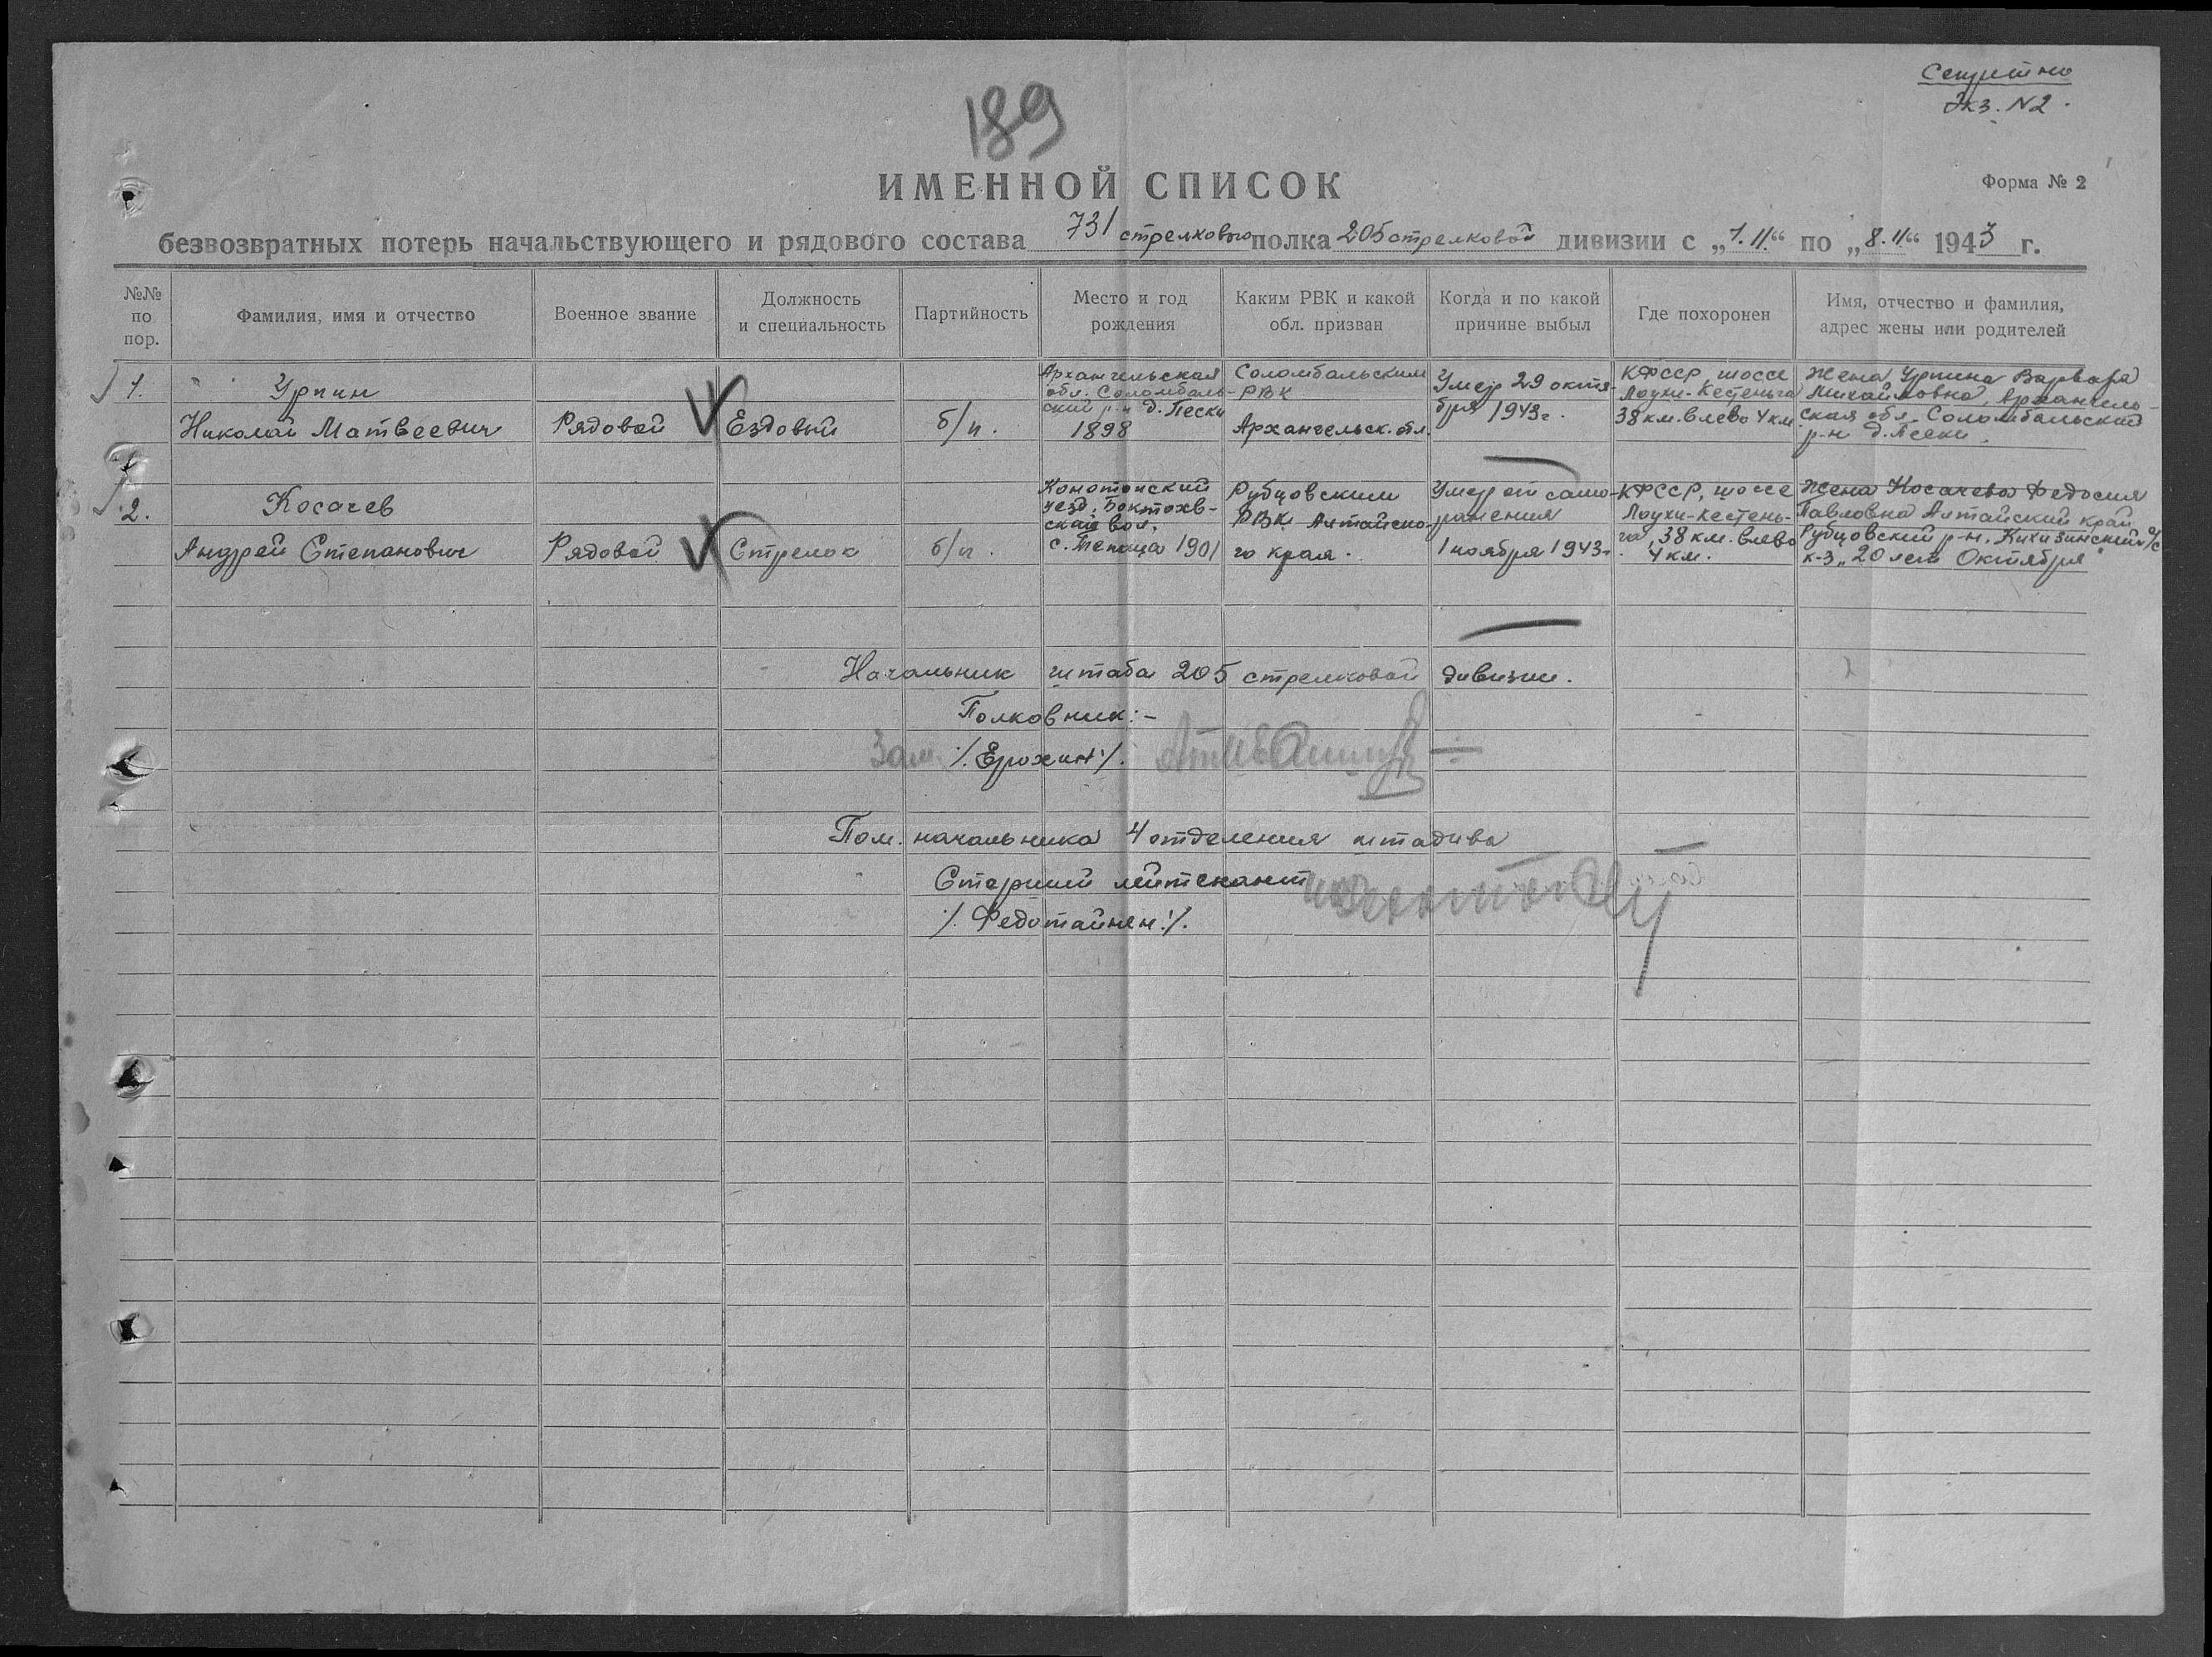 Секретно
Экз. N2.
189
ИМЕННОЙ СПИСОК
Форма № 2
безвозвратных потерь начальствующего и рядового состава 731 стрелкового полка 205 стрелковой дивизии с „1.11.“ по „8.11.“ 1943 г.
№№ по пор.
Фамилия, имя и отчество
Военное звание
Должность и специальность
Партийность
Место и год рождения
Каким РВК и какой обл. призван
Когда и по какой причине выбыл
Где похоронен
Имя, отчество и фамилия, адрес жены или родителей
1.
Урпин
Николай Матвеевич
Рядовой
Ездовый
б/п.
Архангельская
обл. Соломбаль-
ский р-н д. Пески
1898
Соломбальским
РВК
Архангельск. обл.
Умер 29 октя-
бря 1943г.
КФССР шоссе
Лоухи-Кестеньга
38 км. влево 4 км
Жена Урпина Варвара
Михайловна, Архангель-
ская обл. Соломбальский
р-н д. Пески.
2.
Косачев
Андрей Степанович
Рядовой
Стрелок
б/п.
Конотопский
уезд,
ская вол.
с. 1901
Рубцовским
РВК Алтайско-
го края.
Умер от само-
ранения
1 ноября 1943г.
КФССР, шоссе
Лоухи-Кестень-
га, 38 км. влево
4 км.
Жена Косачева Федосия
Павловна Алтайский край
Рубцовский р-н, с/с
к-з „20 лет Октября"
Начальник штаба 205 стрелковой дивизии.
Полковник:-
Зам. /. Ерохин /.
Пом. начальника 4 отделения штадива
Старший лейтенант
/. Федотайнен /.